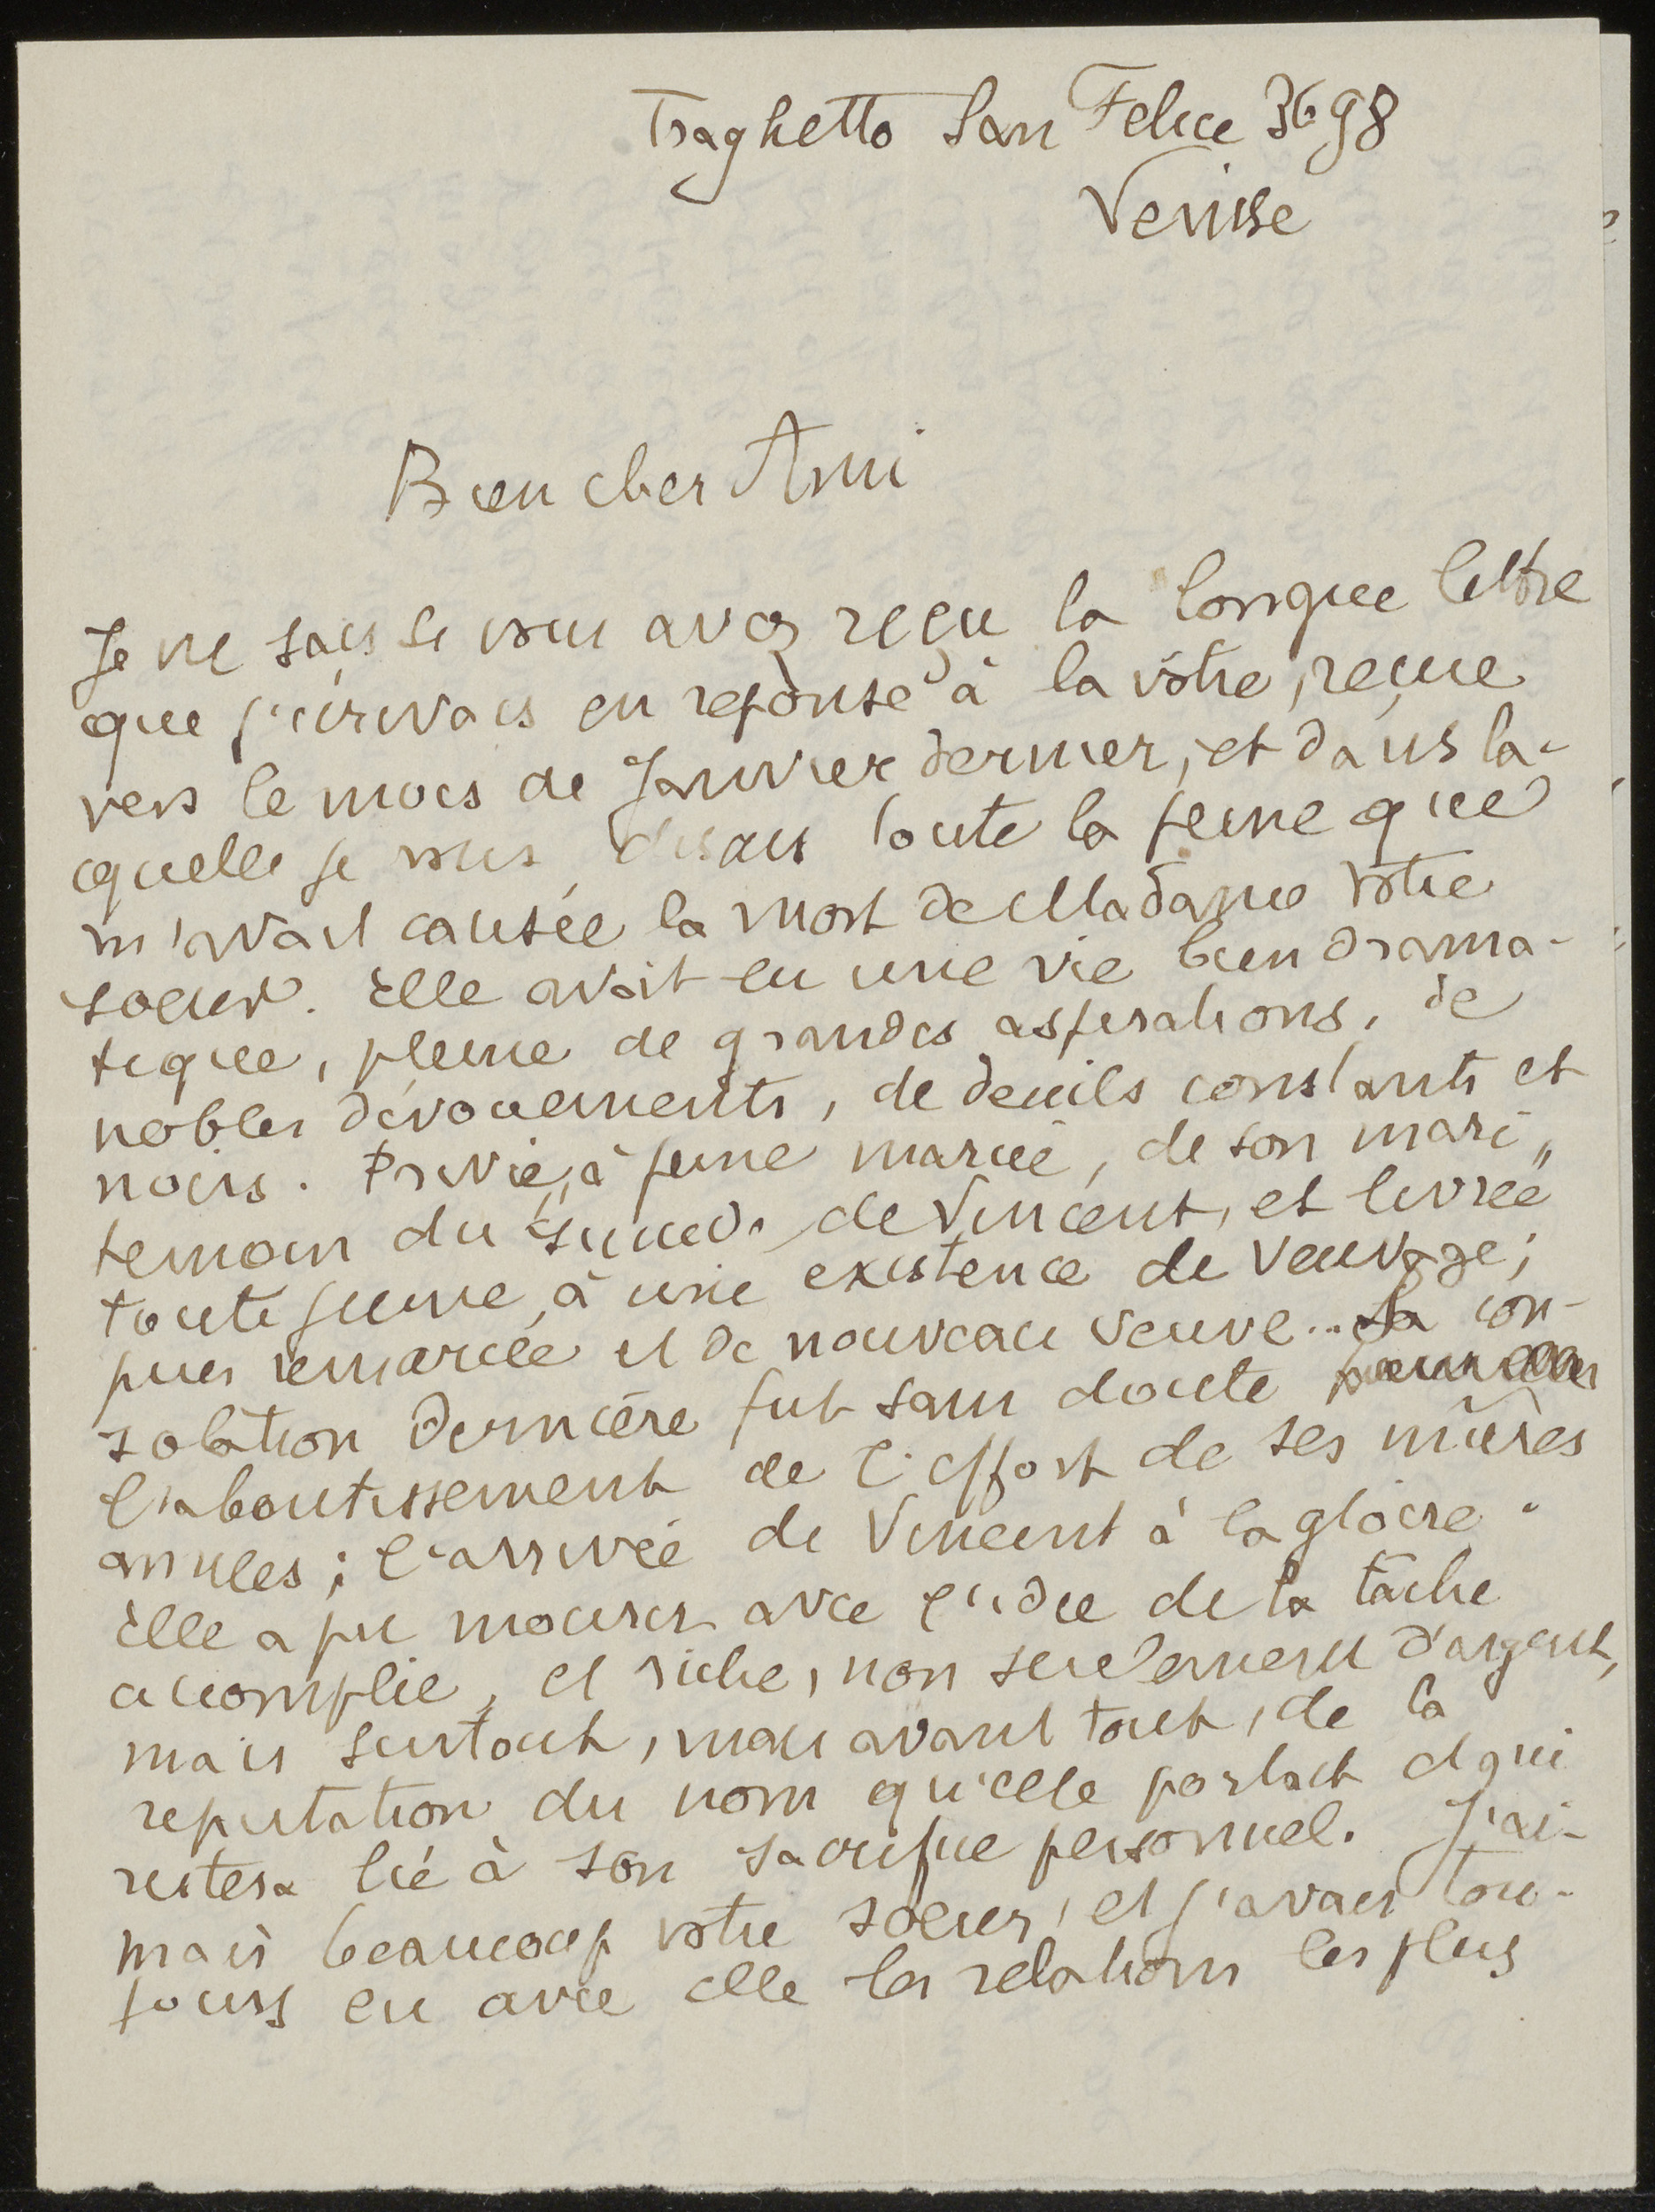 Traghetto San Felice 3698
Venise
Bien cher Ami
Je ne sais si vous avez reçu la longue lettre
que j'écrivais en reponse à la vôtre, reçue
vers le mois de Janvier dernier, et dans la-
quelle je vous disais toute la peine que
m'avait causée la mort de Madame votre
soeur. Elle avait eu une vie bien drama-
tique, pleine de grandes aspirations, de
nobles dévouements, de deuils constants et
noirs. Privée, à peine mariée, de son mari,
temoin du suicide de Vincent, et livrée
toute jeune, à une existence de veuvage;
puis remariée et de nouveau veuve.. Sa con-
solation dernière fut sans doute
l'aboutissement de l'effort de ses mûres
annees; l'arrivée de Vincent à la gloire.
Elle a pu mourir avec l'idee de la tâche
accomplie, et riche, non seulement d'argent,
mais surtout, mais avant tout, de la
reputation du nom qu'elle portait et qui
restera lié à son sacrifice personnel. J'ai-
mais beaucoup votre soeur, et j'avais tou-
jours eu avec elle les relations les plus